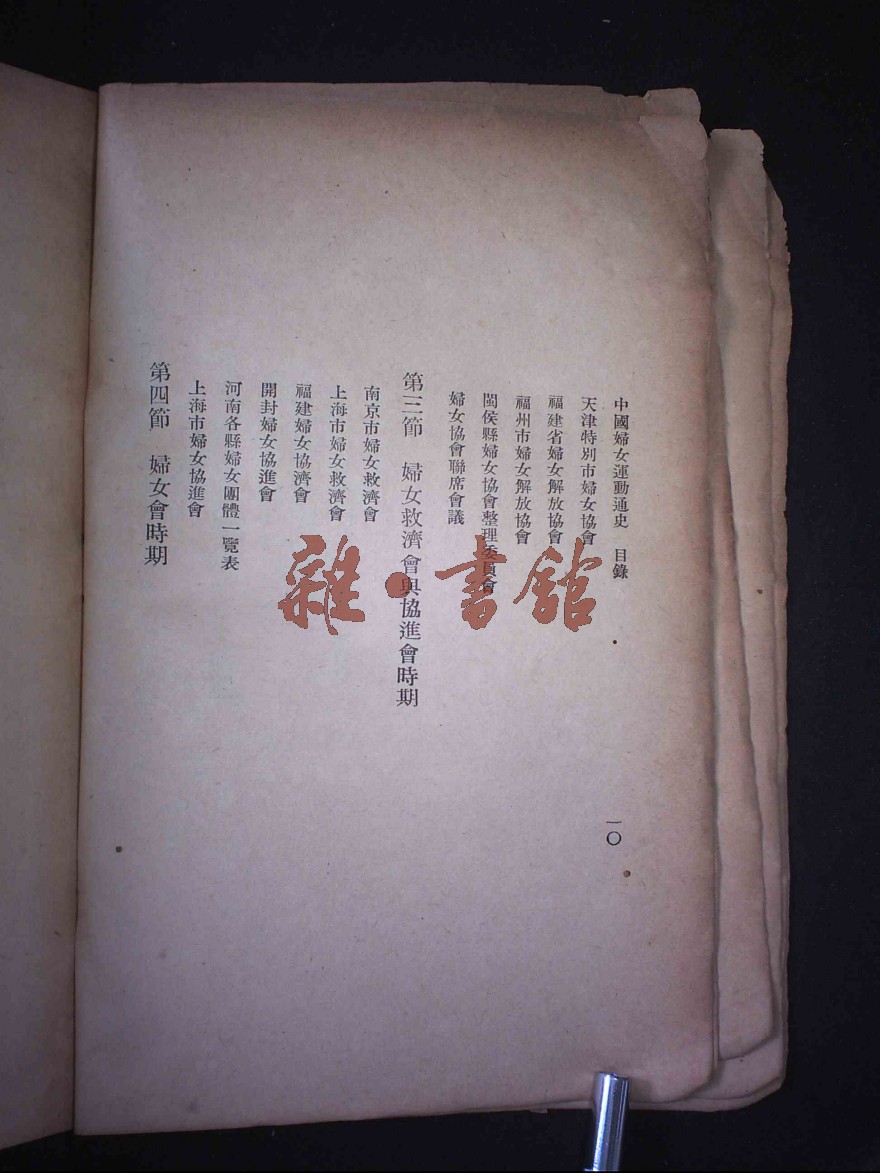 中國婦女運動通史　目錄
一〇
天津特別市婦女協會
福建省婦女解放協會
福州市婦女解放協會
閩侯縣婦女協會整理委員會
婦女協會聯席會議
第三節　婦女救濟會與協進會時期
南京市婦女救濟會
上海市婦女救濟會
福建婦女協濟會
開封婦女協進會
河南各縣婦女團體一覽表
上海市婦女協進會
第四節　婦女會時期
雜·書館